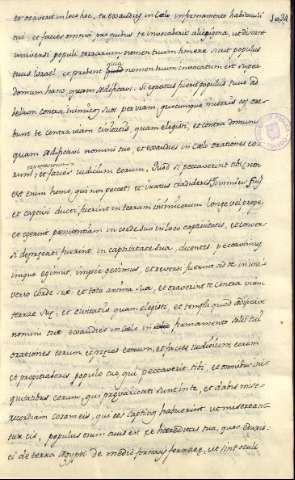 et oraverit in loco hoc, tu exaudies in cælo in firmamento habitaculi
tui, et facies omnia, pro quibus te invocaverit alienigena, ut discant
universi populi terrarum nomen tuum timere sicut populus
tuus Israel, et probent quia nomen tuum invocatum est super
domum hanc quam ædificavi. Si egressus fuerit populus tuus ad
bellum contra inimicos suos per viam, quocumque miseris eos ora-
bunt te contra viam civitatis, quam elegisti, et contra domum
quam ædificavi nomini tuo et exaudies in cælo orationes eo-
rum, et facies iudicium eorum. Quod si peccaverint tibi, non
est enim homo, qui non peccet, et iratus tradideris
et captivi ducti fuerint in terram inimicorum longe vel prope
et egerint pœnitentiam in corde suo in loco captivitatis, et conver-
si deprecati fuerint in captivitate sua, dicentes peccavimus
inique egimus, impie gessimus, et reversi fuerint ad te in uni-
verso corde suo et tota anima sua, et oraverint te contra viam
terræ suæ, et civitatis quam elegisti, et templi quod ædificavi
nomini tuo exaudies in cælo in firmamento solii tui
orationes eorum et preces eorum, et facies iudicium eorum
et propitiaberis populo tuo qui peccavit tibi, et omnibus ini-
quitatibus eorum, qui prævaricati sunt in te, et dabis mise-
ricordiam coram eis, qui eos captivos habuerint, ut misereant-
tur eis, populus enim tuus est et hæreditas tua, quos eduxis-
ti de terra Ægypti de medio fornacis ferreæ, ut sint oculi